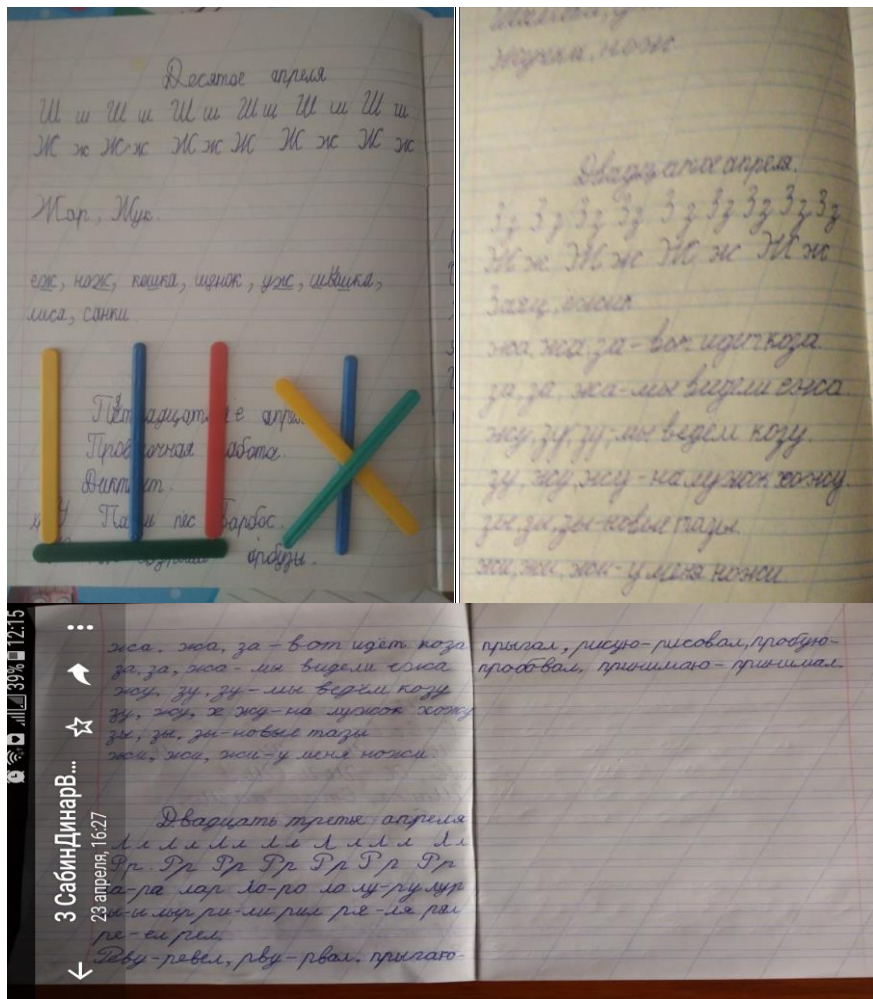 Десятое апреля
Ш ш Ш ш Ш ш Ш ш Ш ш Ш ш
Ж ж Ж ж Ж ж Ж Ж ж Ж ж
Жар, Жук.
ёж, нож, кошка, щенок, уж, шишка,
лиса, санки.
апре
работа.
пёс Барбос.
арбузы.
Жучка, нож
Двадцатое апреля.
Зз Зз Зз Зз Зз Зз Зз Зз Зз
Ж ж Ж ж Ж ж Ж ж
Заяц, ёжик
жа, жа, за - вот идит коза.
за, за, жа - мы видели ежа.
жу, зу, зу - мы ведем козу
зу, жу, жу - на лужок хожу.
зы, зы, зы - новые тазы
жи, жи, жи - у меня ножи
12:15
39%
3 СабинДинарВ...
23 апреля, 16:27
жа, жа, за - вот идёт коза
за, за, жа - мы видели ежа
жу, зу, зу - мы ведём козу
зу, жу, жу - на лужок хожу
зы, зы, зы - новые тазы
жи, жи, жи - у меня ножи.
Двадцать третье апреля
Лл Лл Лл Лл Лл Лл Лл
Рр Рр Рр Рр Рр Рр Рр
ла-ра лар ло-ро ло лу-ру лур
лы-ы лыр ри-ли рил ря-ля рял
ре-ел рел.
Реву-ревел, рву-рвал, прыгаю-
прыгал, рисую-рисовал, пробую-
пробовал, принимаю-принимал.